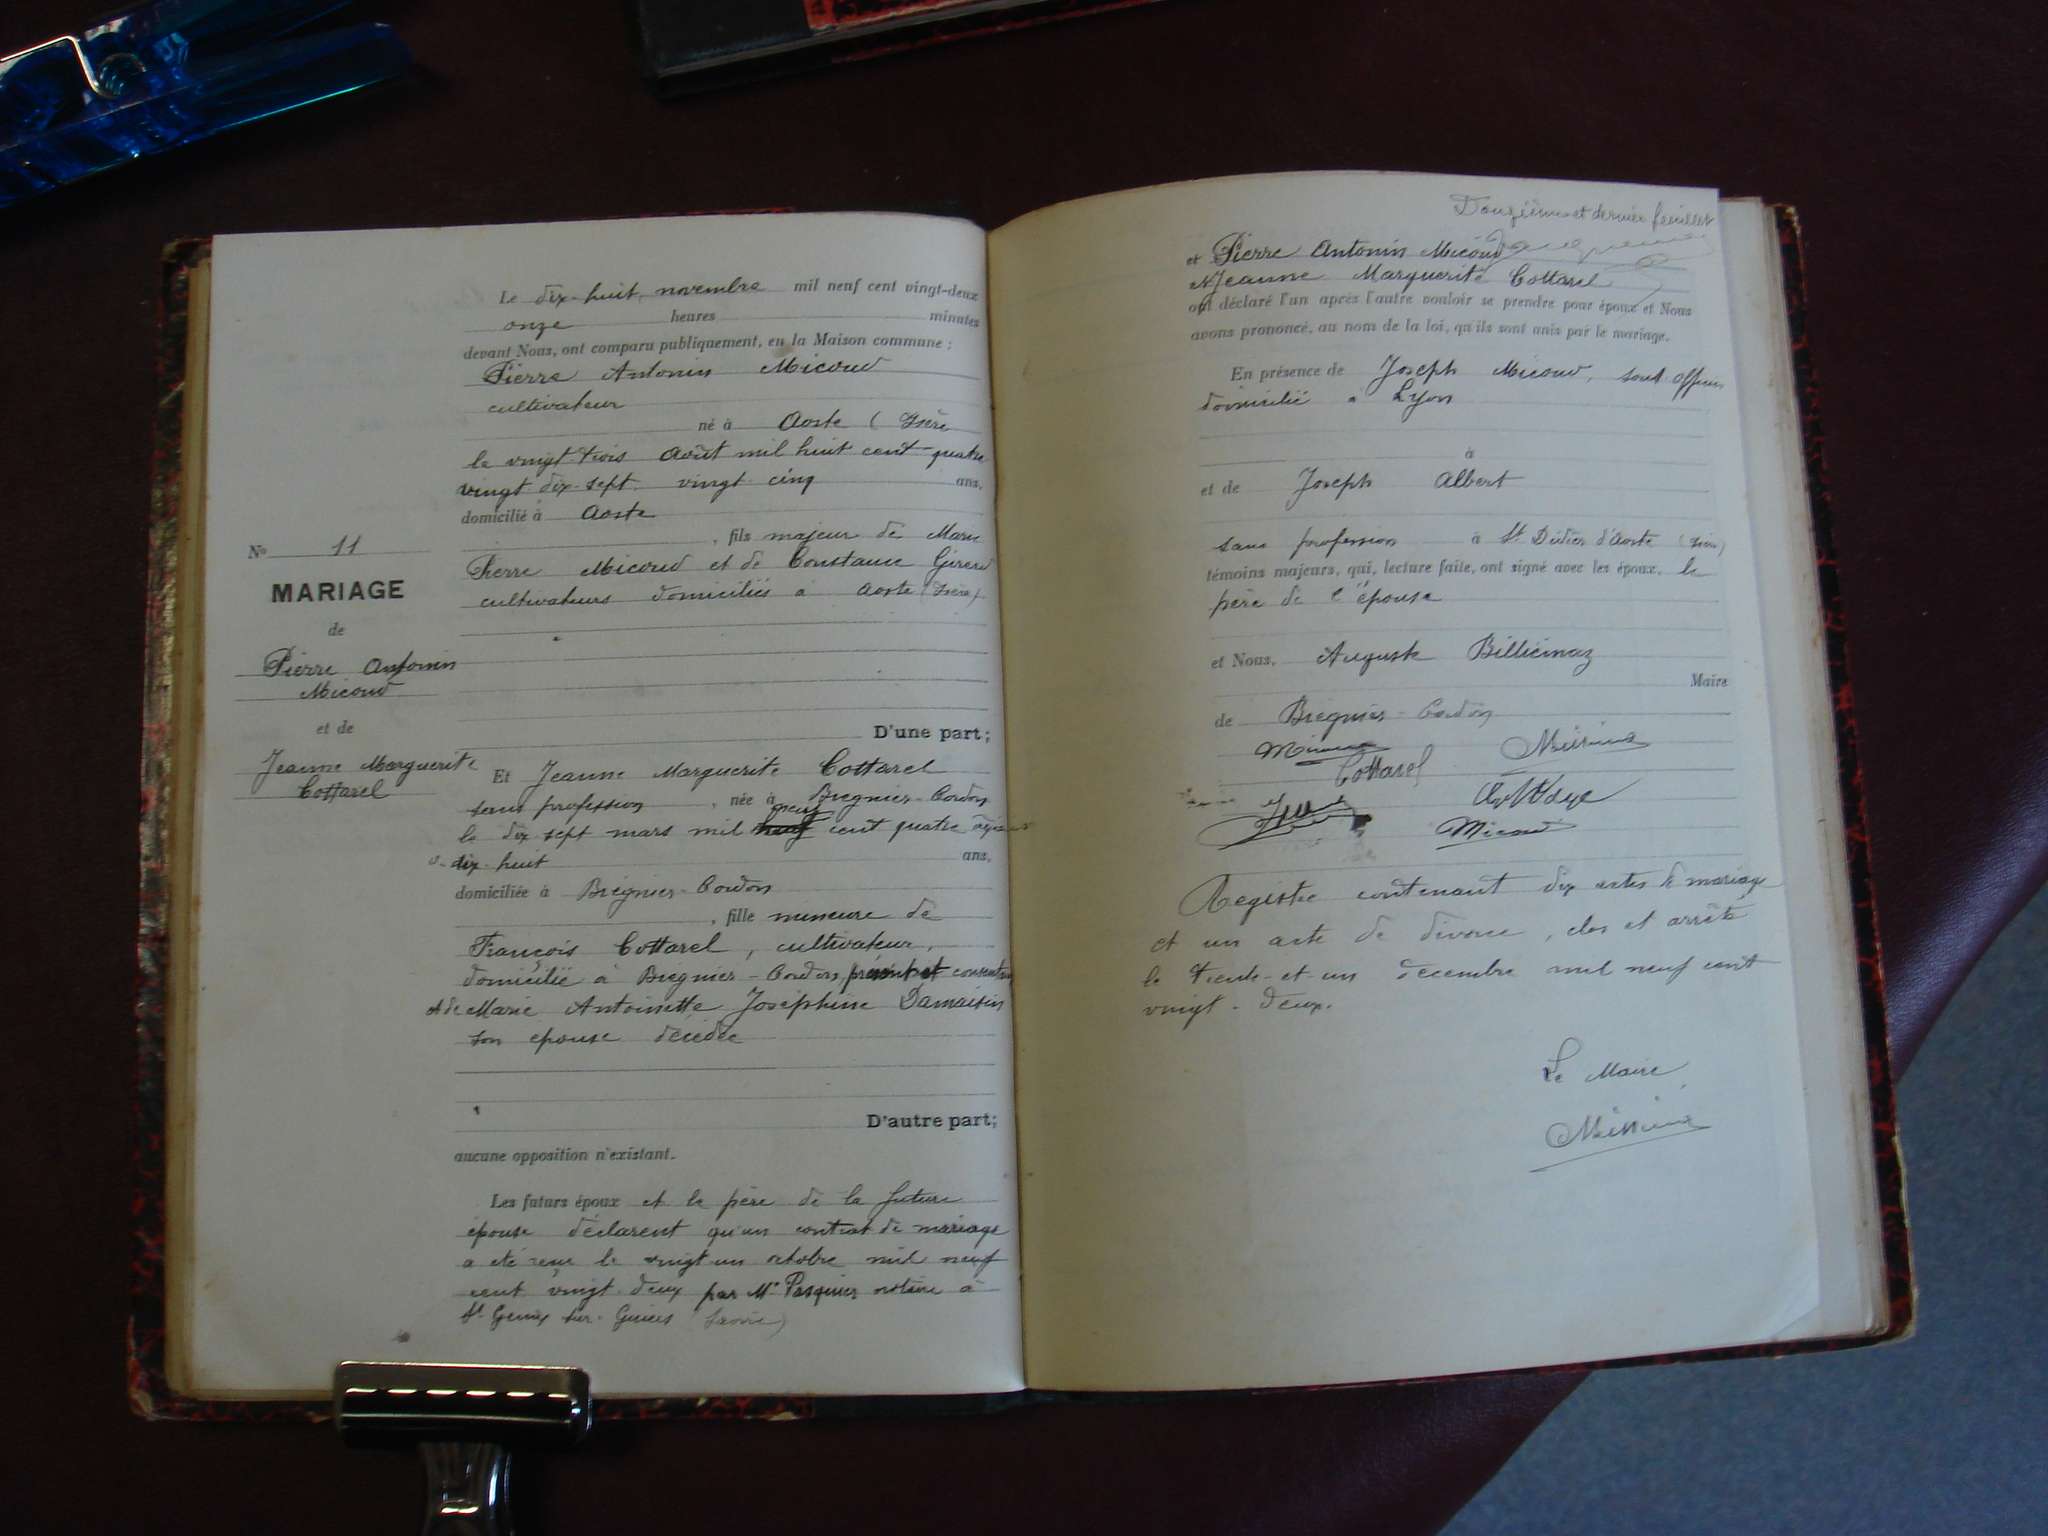 Le dix-huit novembre mil neuf cent vingt-deux
onze heures minutes
devant Nous, ont comparu publiquement, en la Maison commune :
Pierre Antonin Micoud
cultivateur
né à Aoste (Isère
le vingt-trois Août mil huit cent quatre
vingt dix-sept. vingt cinq ans,
domicilié à Aoste
, fils majeur de Marie
Pierre Micoud et de Constance Girerd
cultivateurs domiciliés à Aoste (Isère)
D'une part;
No 11
MARIAGE
de
Pierre Antonin
Micoud
et de
Jeanne Marguerite
Cottarel
Et Jeanne Marguerite Cottarel
sans profession , née à Bregnier-Cordon
le dix sept mars mil neuf cent quatre
dix-huit ans,
domiciliée à Brégnier-Cordon
, fille mineure de
François Cottarel, cultivateur,
domicilié à Bregnier-Cordon, présent et consentant
et de Marie Antoinette Joséphine Damaisin
son épouse décédée
D'autre part;
aucune opposition n'existant.
Les futurs époux et le père de la future
épouse déclarent qu'un contrat de mariage
a été reçu le vingt-un octobre mil neuf
cent vingt-deux par Me Pasquier notaire à
St Genix sur-Guiers Savoie)
Douzième et dernier feuillet
et Pierre Antonin Micoud
Jeanne Marguerite Cottarel
ont déclaré l'un après l'autre vouloir se prendre pour époux et Nous
avons prononcé, au nom de la loi, qu'ils sont unis par le mariage.
En présence de Joseph Micoud, sous officier
domicilié à Lyon
à
et de Joseph Albert
sans profession à St Didier d'Aoste (Isère)
témoins majeurs, qui, lecture faite, ont signé avec les époux, le
père de l'épouse
et Nous, Auguste Billiémaz
Maire
de Brégnier-Cordon
Cottarel
Micoud
Registre contenant dix actes de mariage
et un acte de divorce, clos et arrêté
le trente-et-un décembre mil neuf cent
vingt-deux.
Le Maire,